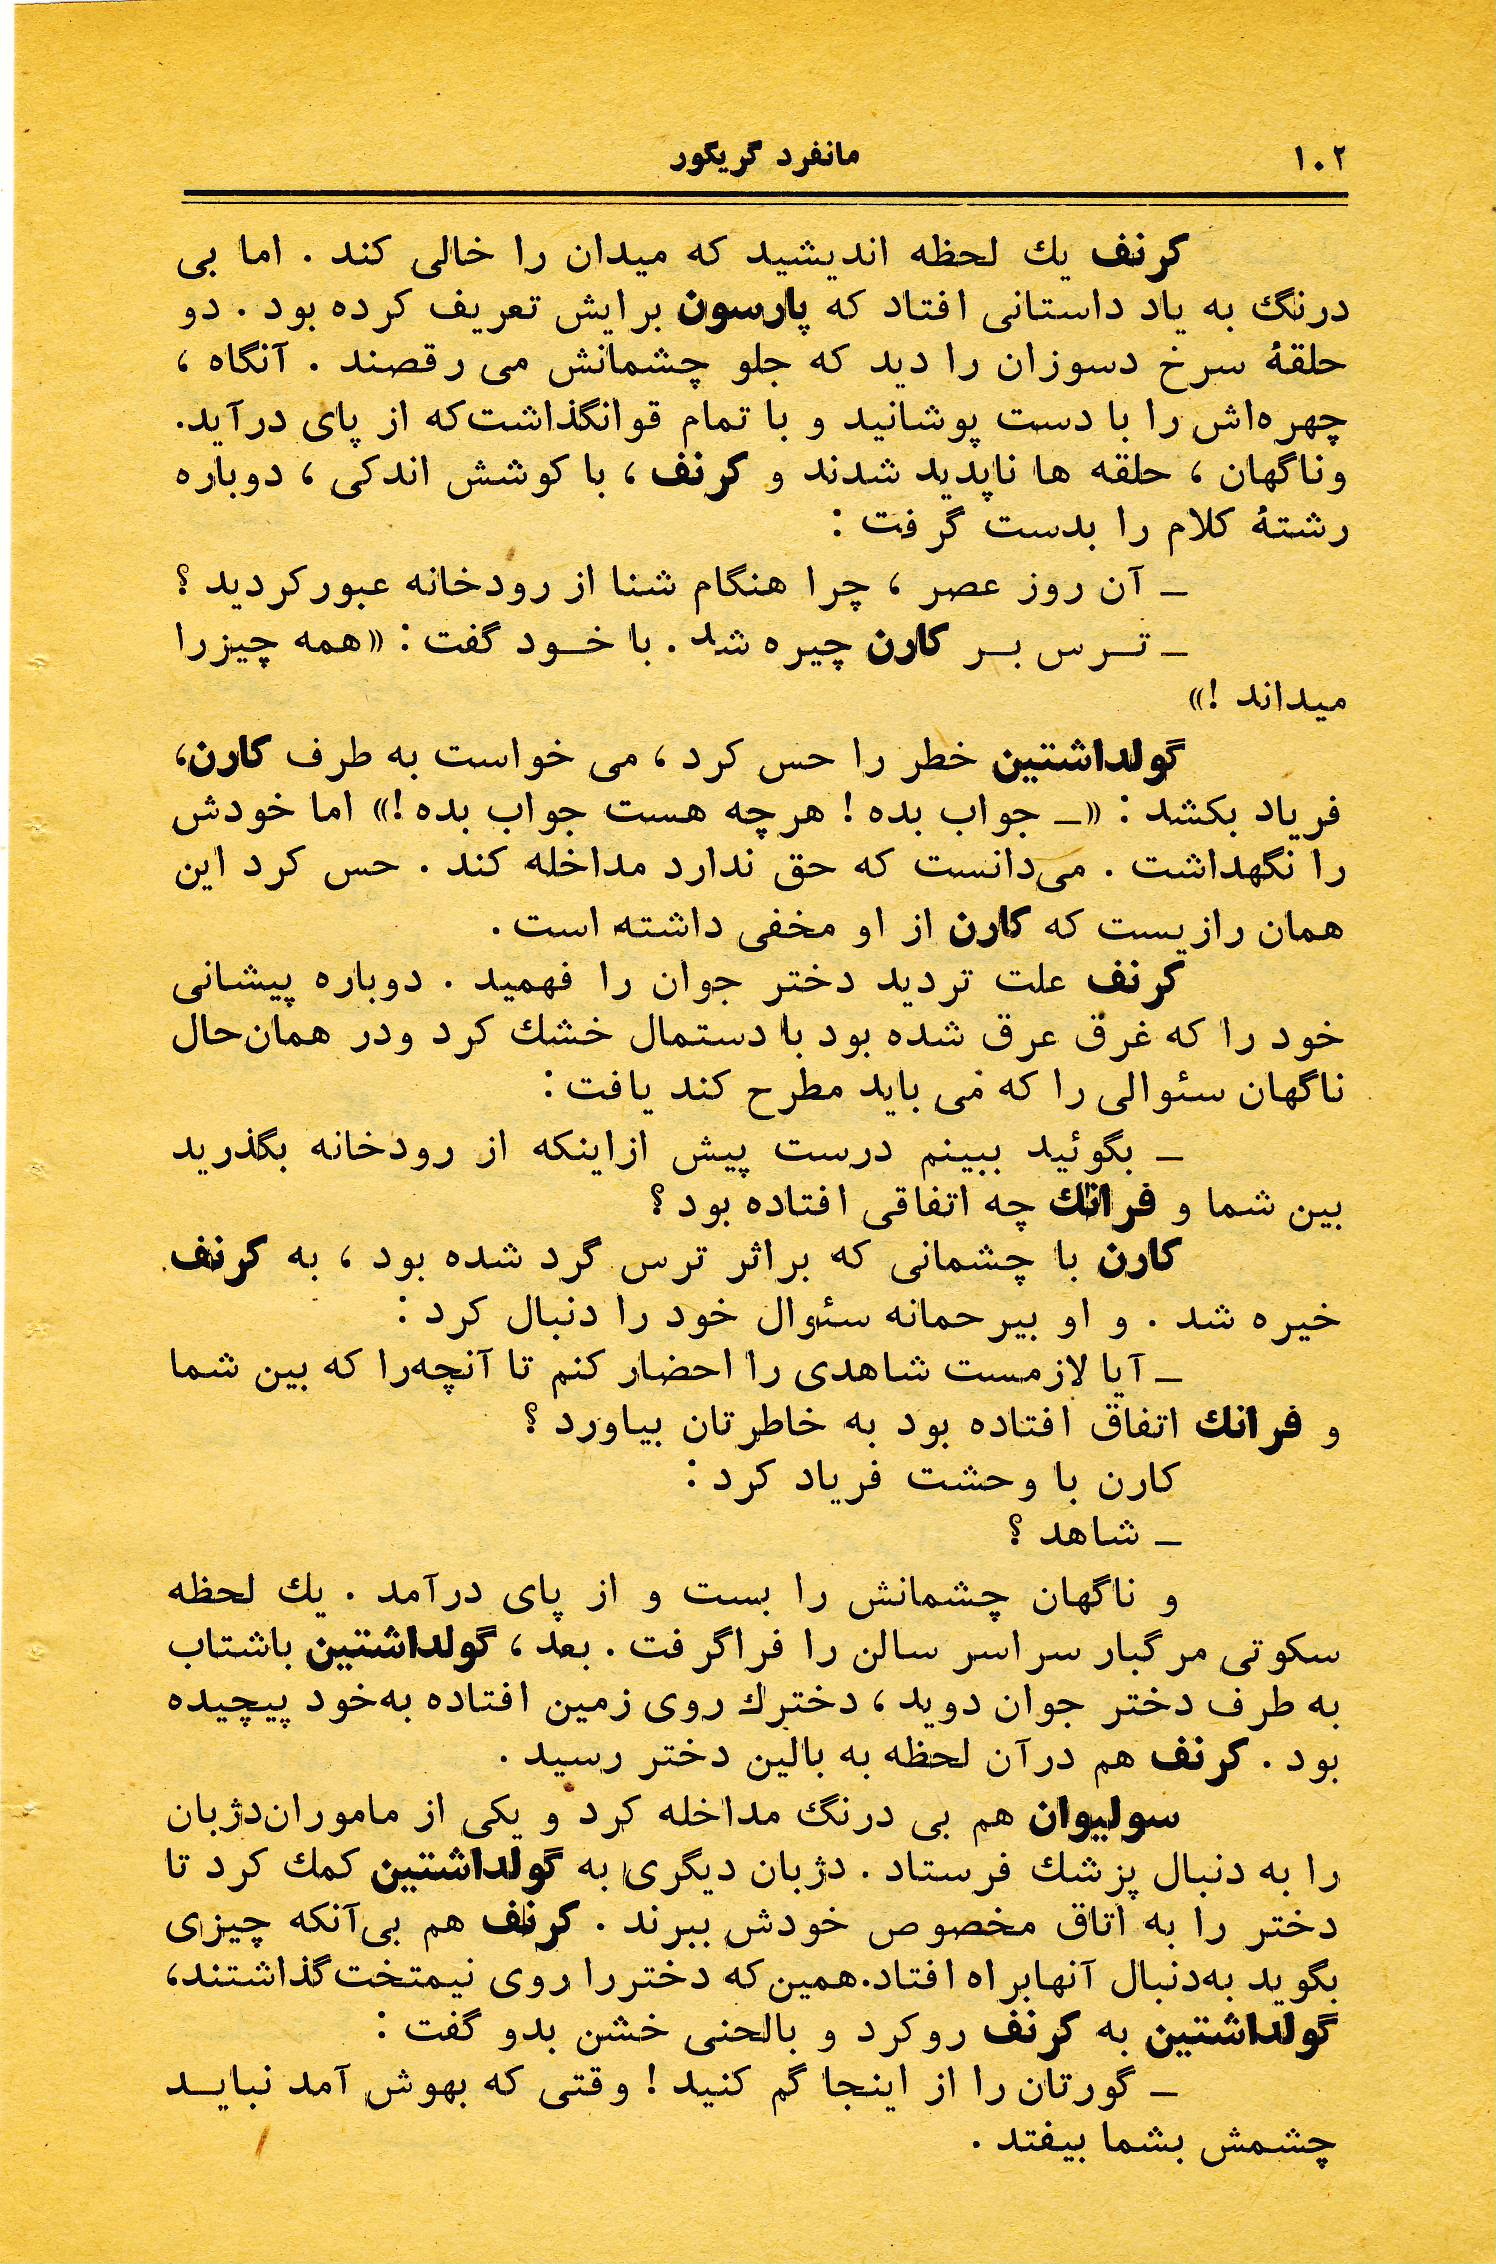 ۱۰۲
مانفرد گریگور
کرنف یك لحظه اندیشید که میدان را خالی کند . اما بی
درنگ به یاد داستانی افتاد که پارسون برایش تعریف کرده بود . دو
حلقهٔ سرخ دسوزان را دید که جلو چشمانش می رقصند . آنگاه ،
چهره‌اش را با دست پوشانید و با تمام قوانگذاشت‌که از پای درآید.
وناگهان ، حلقه ها ناپدید شدند و کرنف ، با کوشش اندکی ، دوباره
رشتهٔ کلام را بدست گرفت :
ـ آن روز عصر ، چرا هنگام شنا از رودخانه عبورکردید ؟
ـ تــرس بــر کارن چیره شد . با خــود گفت : «همه چیزرا
میداند !»
گولداشتین خطر را حس کرد ، می خواست به طرف کارن،
فریاد بکشد : «ـ جواب بده ! هرچه هست جواب بده !» اما خودش
را نگهداشت . می‌دانست که حق ندارد مداخله کند . حس کرد این
همان رازیست که کارن از او مخفی داشته است .
کرنف علت تردید دختر جوان را فهمید . دوباره پیشانی
خود را که غرق عرق شده بود با دستمال خشك کرد ودر همان‌حال
ناگهان سئوالی را که می باید مطرح کند یافت :
ـ بگوئید ببینم درست پیش ازاینکه از رودخانه بگذرید
بین شما و فرانك چه اتفاقی افتاده بود ؟
کارن با چشمانی که براثر ترس گرد شده بود ، به کرنف
خیره شد . و او بیرحمانه سئوال خود را دنبال کرد :
ـ آیا لازمست شاهدی را احضار کنم تا آنچه‌را که بین شما
و فرانك اتفاق افتاده بود به خاطرتان بیاورد ؟
کارن با وحشت فریاد کرد :
ـ شاهد ؟
و ناگهان چشمانش را بست و از پای درآمد . یك لحظه
سکوتی مرگبار سراسر سالن را فراگرفت . بعد ، گولداشتین باشتاب
به طرف دختر جوان دوید ، دخترك روی زمین افتاده به‌خود پیچیده
بود . کرنف هم درآن لحظه به بالین دختر رسید .
سولیوان هم بی درنگ مداخله کرد و یکی از ماموران‌دژبان
را به دنبال پزشك فرستاد . دژبان دیگری به گولداشتین کمك کرد تا
دختر را به اتاق مخصوص خودش ببرند . کرنف هم بی‌آنکه چیزی
بگوید به‌دنبال آنهابراه افتاد.همین‌که دختررا روی نیمتخت‌گذاشتند،
گولداشتین به کرنف روکرد و بالحنی خشن بدو گفت :
ـ گورتان را از اینجا گم کنید ! وقتی که بهوش آمد نبایــد
چشمش بشما بیفتد .